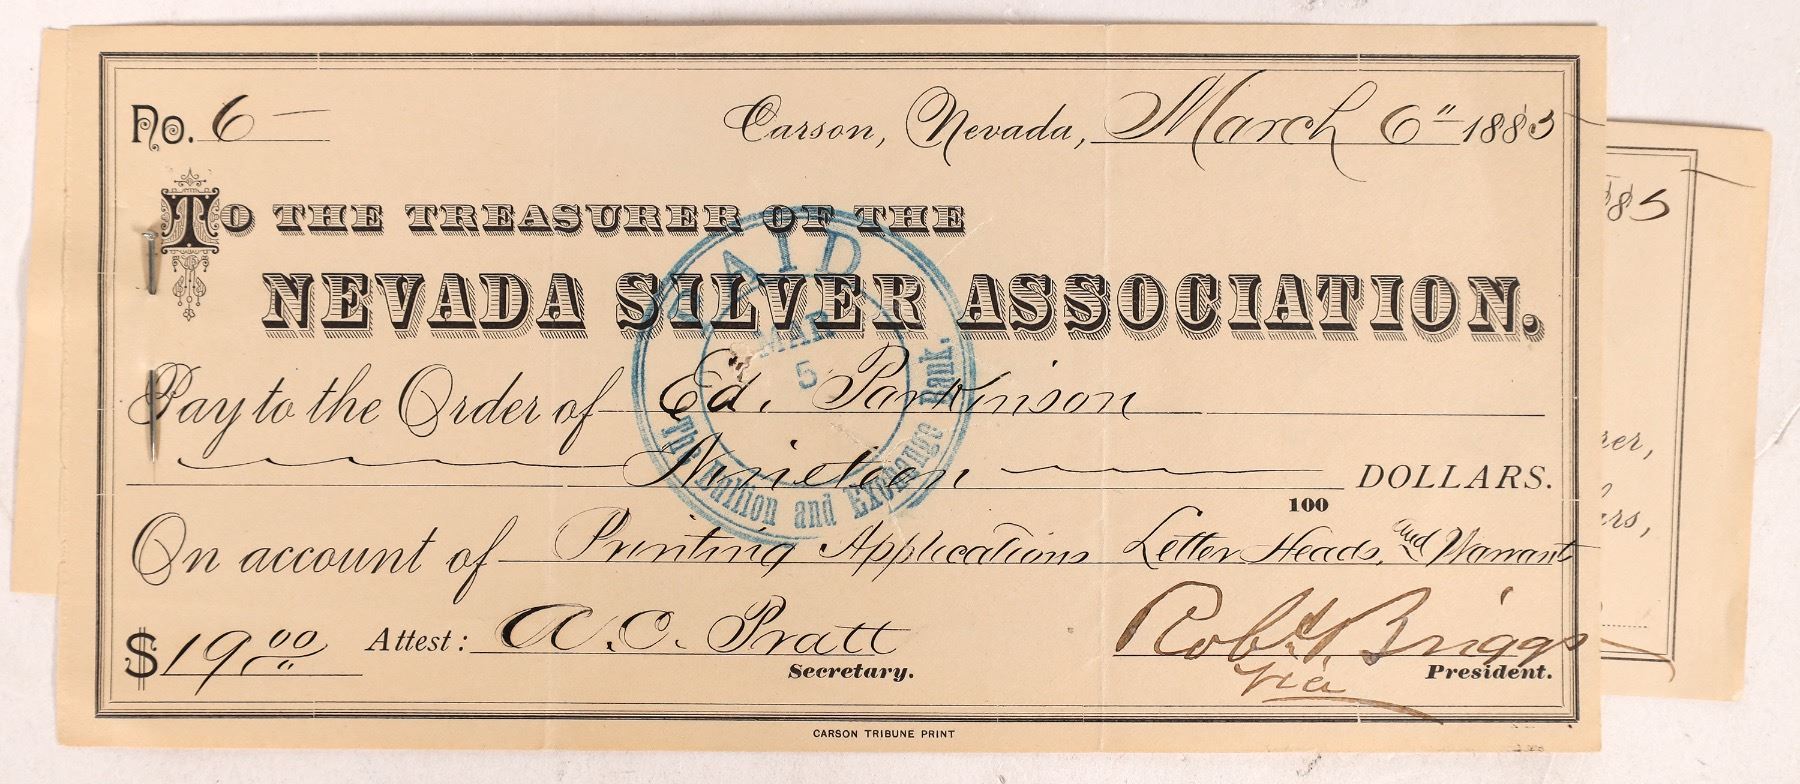 No. 6 –
Carson, Nevada, March 6" 1885
To the Treasurer of the
NEVADA SILVER ASSOCIATION.
Pay to the Order of Ed. Parkinson
Nineteen 100 DOLLARS.
On account of Printing Applications Letter Heads, and Warrants
$19.00 Attest: A.C. Pratt Secretary.
Robt. Briggs President.
Vice
CARSON TRIBUNE PRINT
PAID
MAR
5
The Bullion and Exchange Bank.